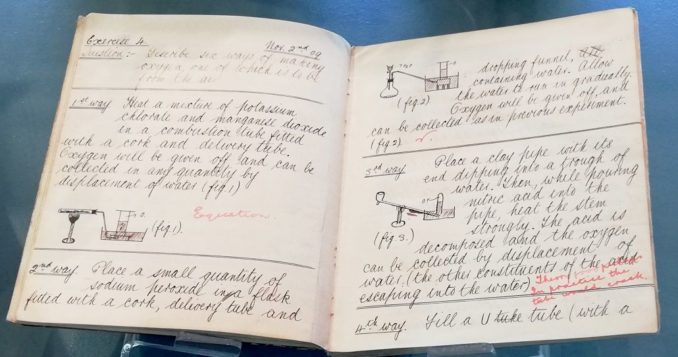 Exercise 4
Nov. 2nd 09
Question:- Describe six ways of making
oxygen one of which is to be
from the air
1st way Heat a mixture of potassium
chlorate and manganese dioxide
in a combustion tube fitted
with a cork and delivery tube.
Oxygen will be given off and can be
collected in any quantity by
displacement of water (fig 1)
Equation.
(fig 1).
2nd way. Place a small quantity of
sodium peroxide in a flask
fitted with a cork, delivery tube and
dropping funnel,
containing water. Allow
the water to run in gradually.
(fig 2)
Oxygen will be given off, and
can be collected as in previous experiment.
(fig 2).
3rd way. Place a clay pipe with its
end dipping into a trough of
water. Then, while pouring
nitric acid into the
pipe, heat the stem
(fig 3.)
strongly. The acid is
decomposed and the oxygen
can be collected by displacement of
water. (the other constituents of the acid
escaping into the water)
in practice the
tube would crack.
4th way. Fill a U tuke tube (with a